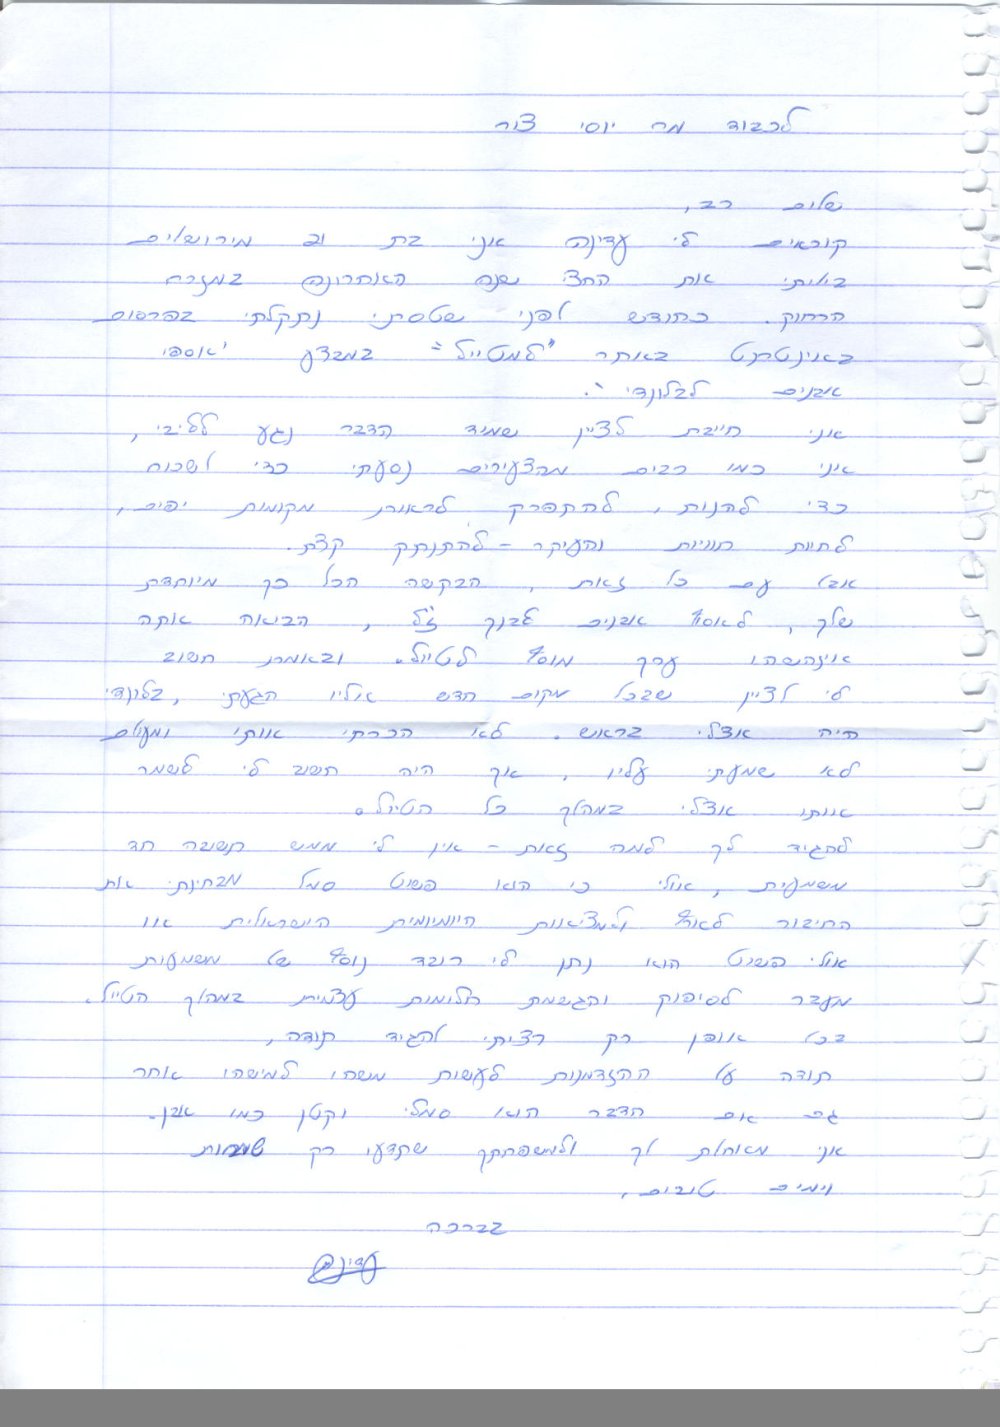 לכבוד מר יוסי צור
שלום רב,
קוראים לי עדינה אני בת מירושלים
ביליתי את החצי שנה האחרונה במזרח
הרחוק. כחודש לפני שטסתי נתקלתי בפרסום
באינטרנט באתר "למטייל" במבצע "אספו
אבנים לבלונדי".
אני חייבת לציין שמיד הדבר נגע לליבי,
אני כמו רבים מהצעירים נסעתי כדי לשכוח
כדי להנות, להתפרק לראות מקומות יפים,
לחיות חוויות והעיקר - להתנתק קצת.
אבל עם כל זאת, הבקשה הכל כך מיוחדת
שלך, לאסוף אבנים לבנך ז"ל, הביאה אתה
איזהשהו ערך מוסף לטיול. ובאמת חשוב
לי לציין שבכל מקום חדש אליו הגעתי, בלונדי
היה אצלי בראש. לא הכרתי אותו ומעולם
לא שמעתי עליו, אך היה חשוב לי לשמר
אותו אצלי במהלך כל הטיול.
להגיד לך למה זאת - אין לי ממש תשובה חד
משמעית, אולי כי הוא פשוט סמל מבחינתי את
החיבור לארץ ולמציאות היומיומית הישראלית או
אולי פשוט הוא נתן לי רובד נוסף של משמעות
מעבר לסיפוק והגשמת חלומות עצמית במהלך הטיול.
בכל אופן רק רציתי להגיד תודה,
תודה על ההזדמנות לעשות משהו למישהו אחר
גם אם הדבר הוא סמלי וקטן כמו אבן.
אני מאחלת לך ולמשפחתך שתדעו רק שמחות
וימים טובים,
בברכה
עדינה